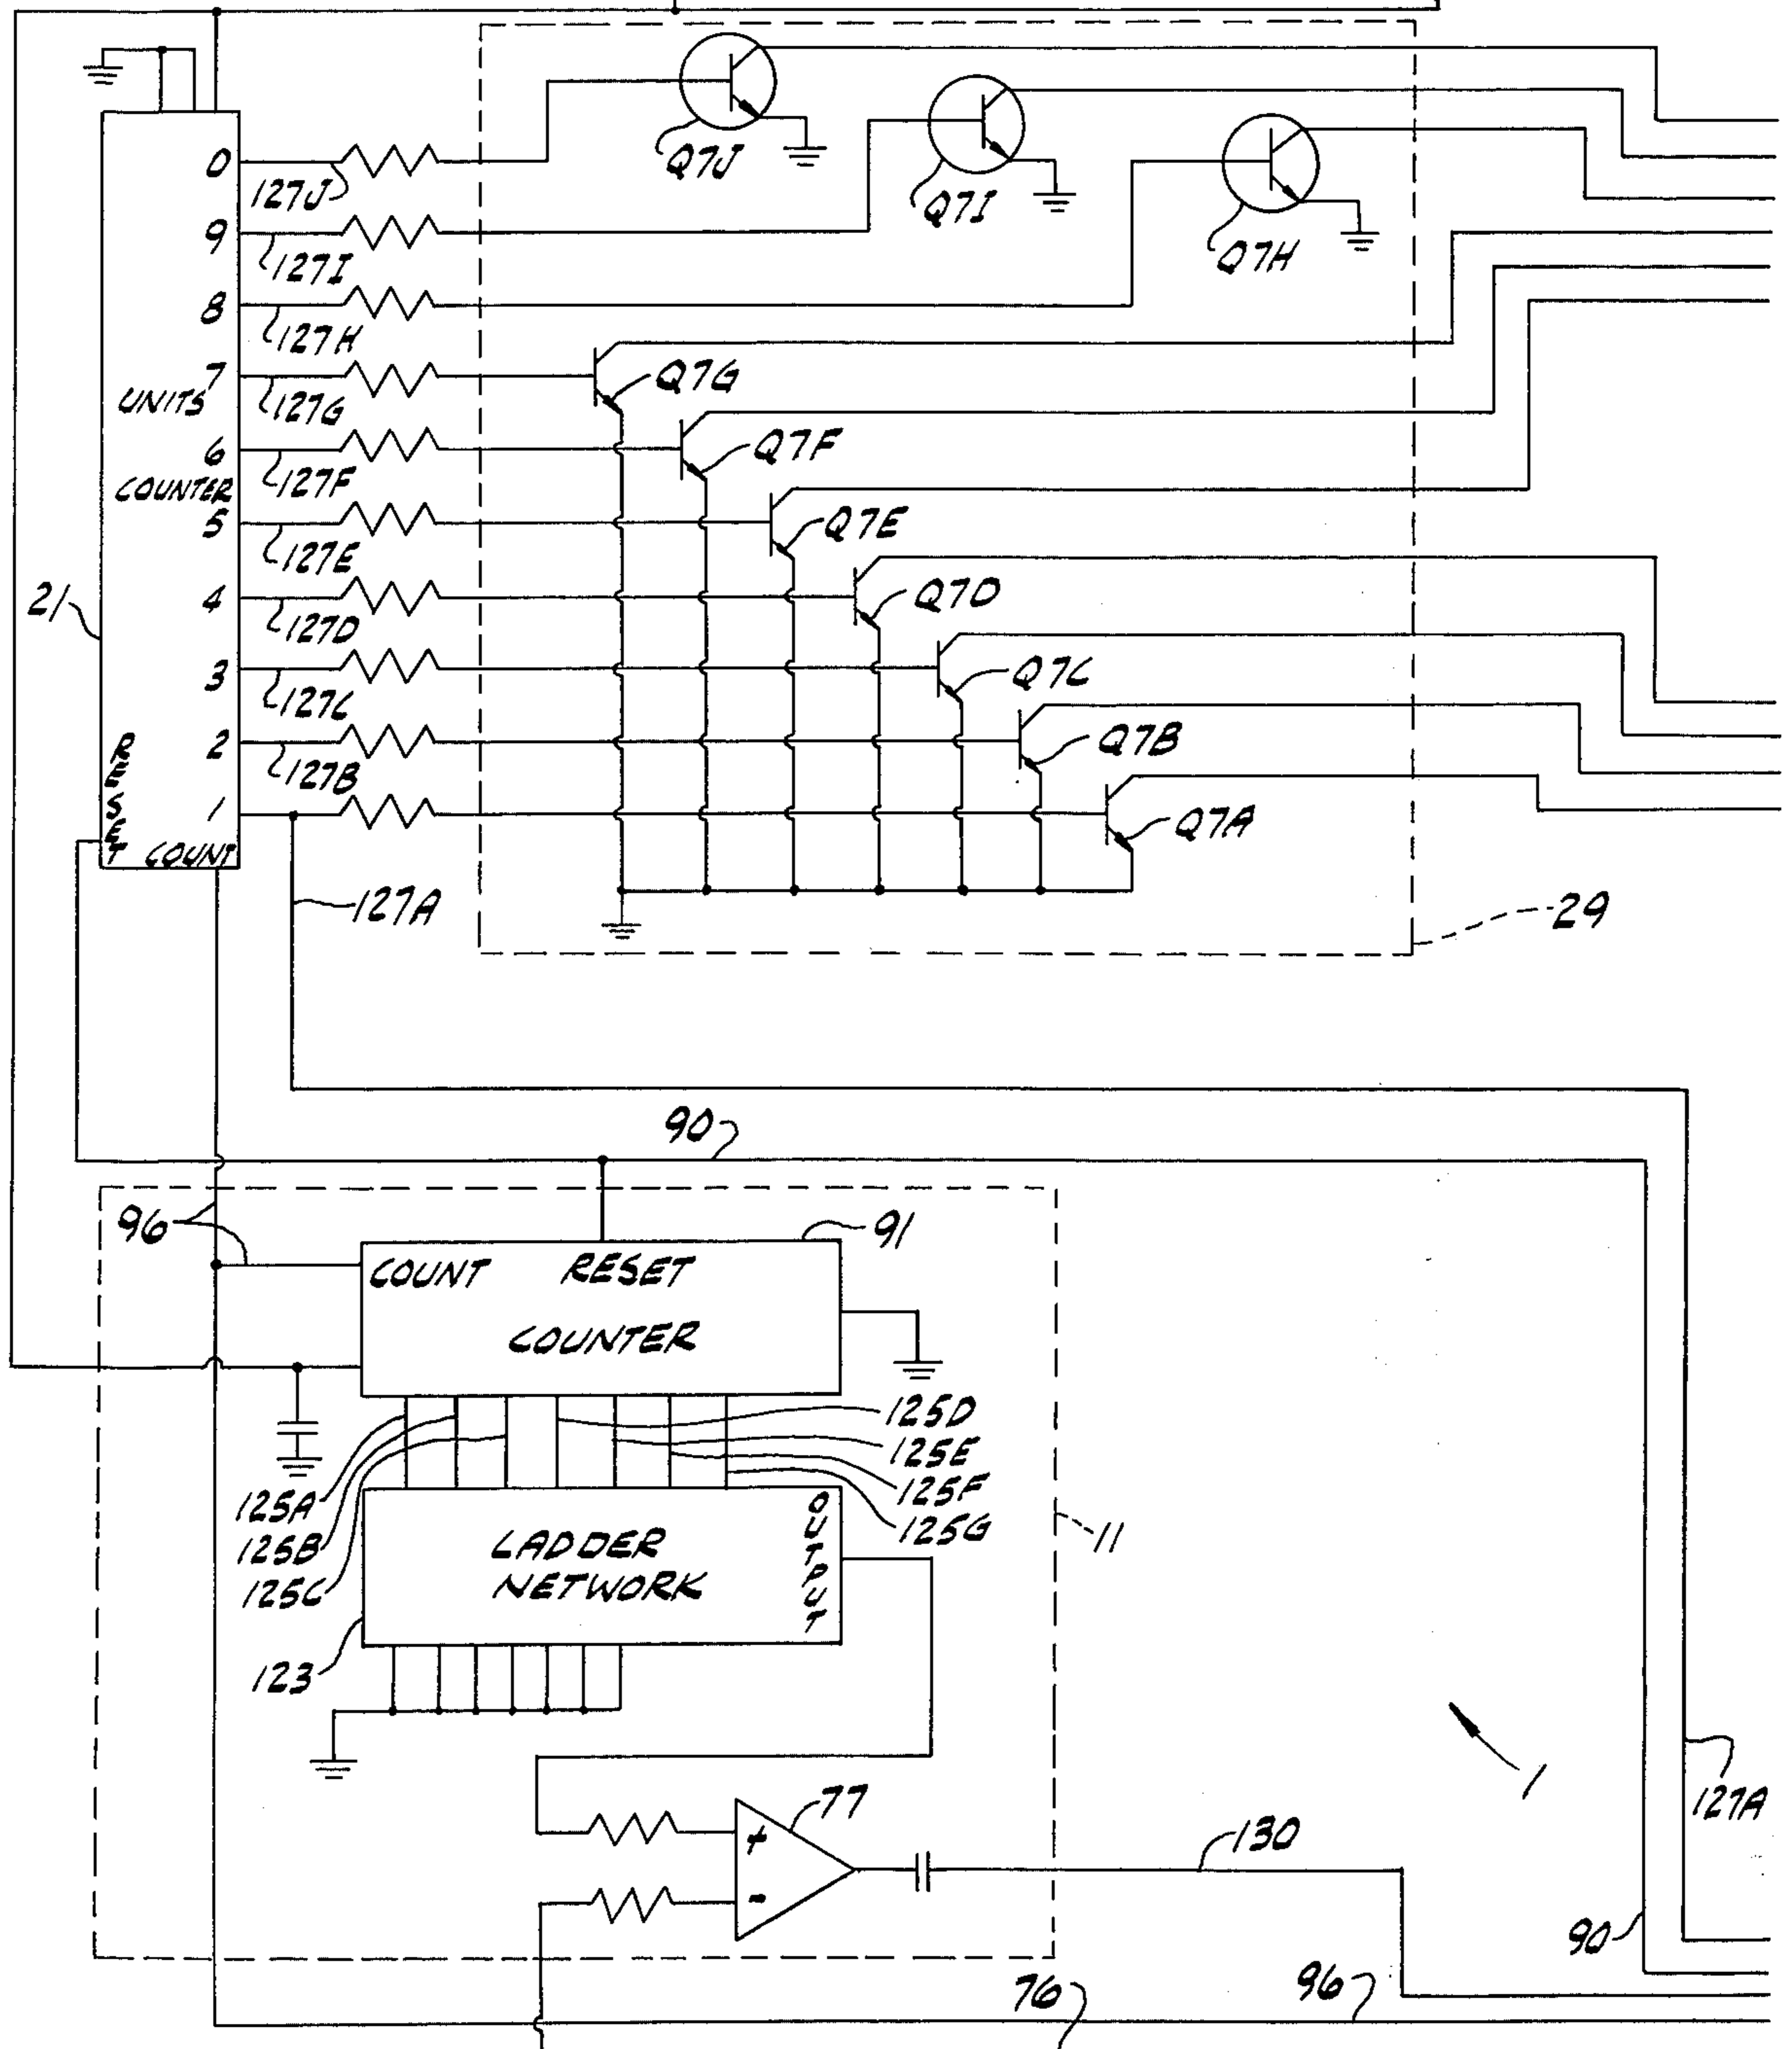 0
127J
Q7J
9
127I
Q7I
8
127H
Q7H
7
127G
Q7G
UNITS
6
127F
Q7F
COUNTER
5
127E
Q7E
21
4
127D
Q7D
3
127C
Q7C
2
127B
Q7B
1
Q7A
RESET
COUNT
127A
29
90
96
91
COUNT RESET
COUNTER
125D
125E
125F
125G
125A
125B
125C
LADDER
NETWORK
OUTPUT
11
123
77
+
-
130
1
127A
90
76
96